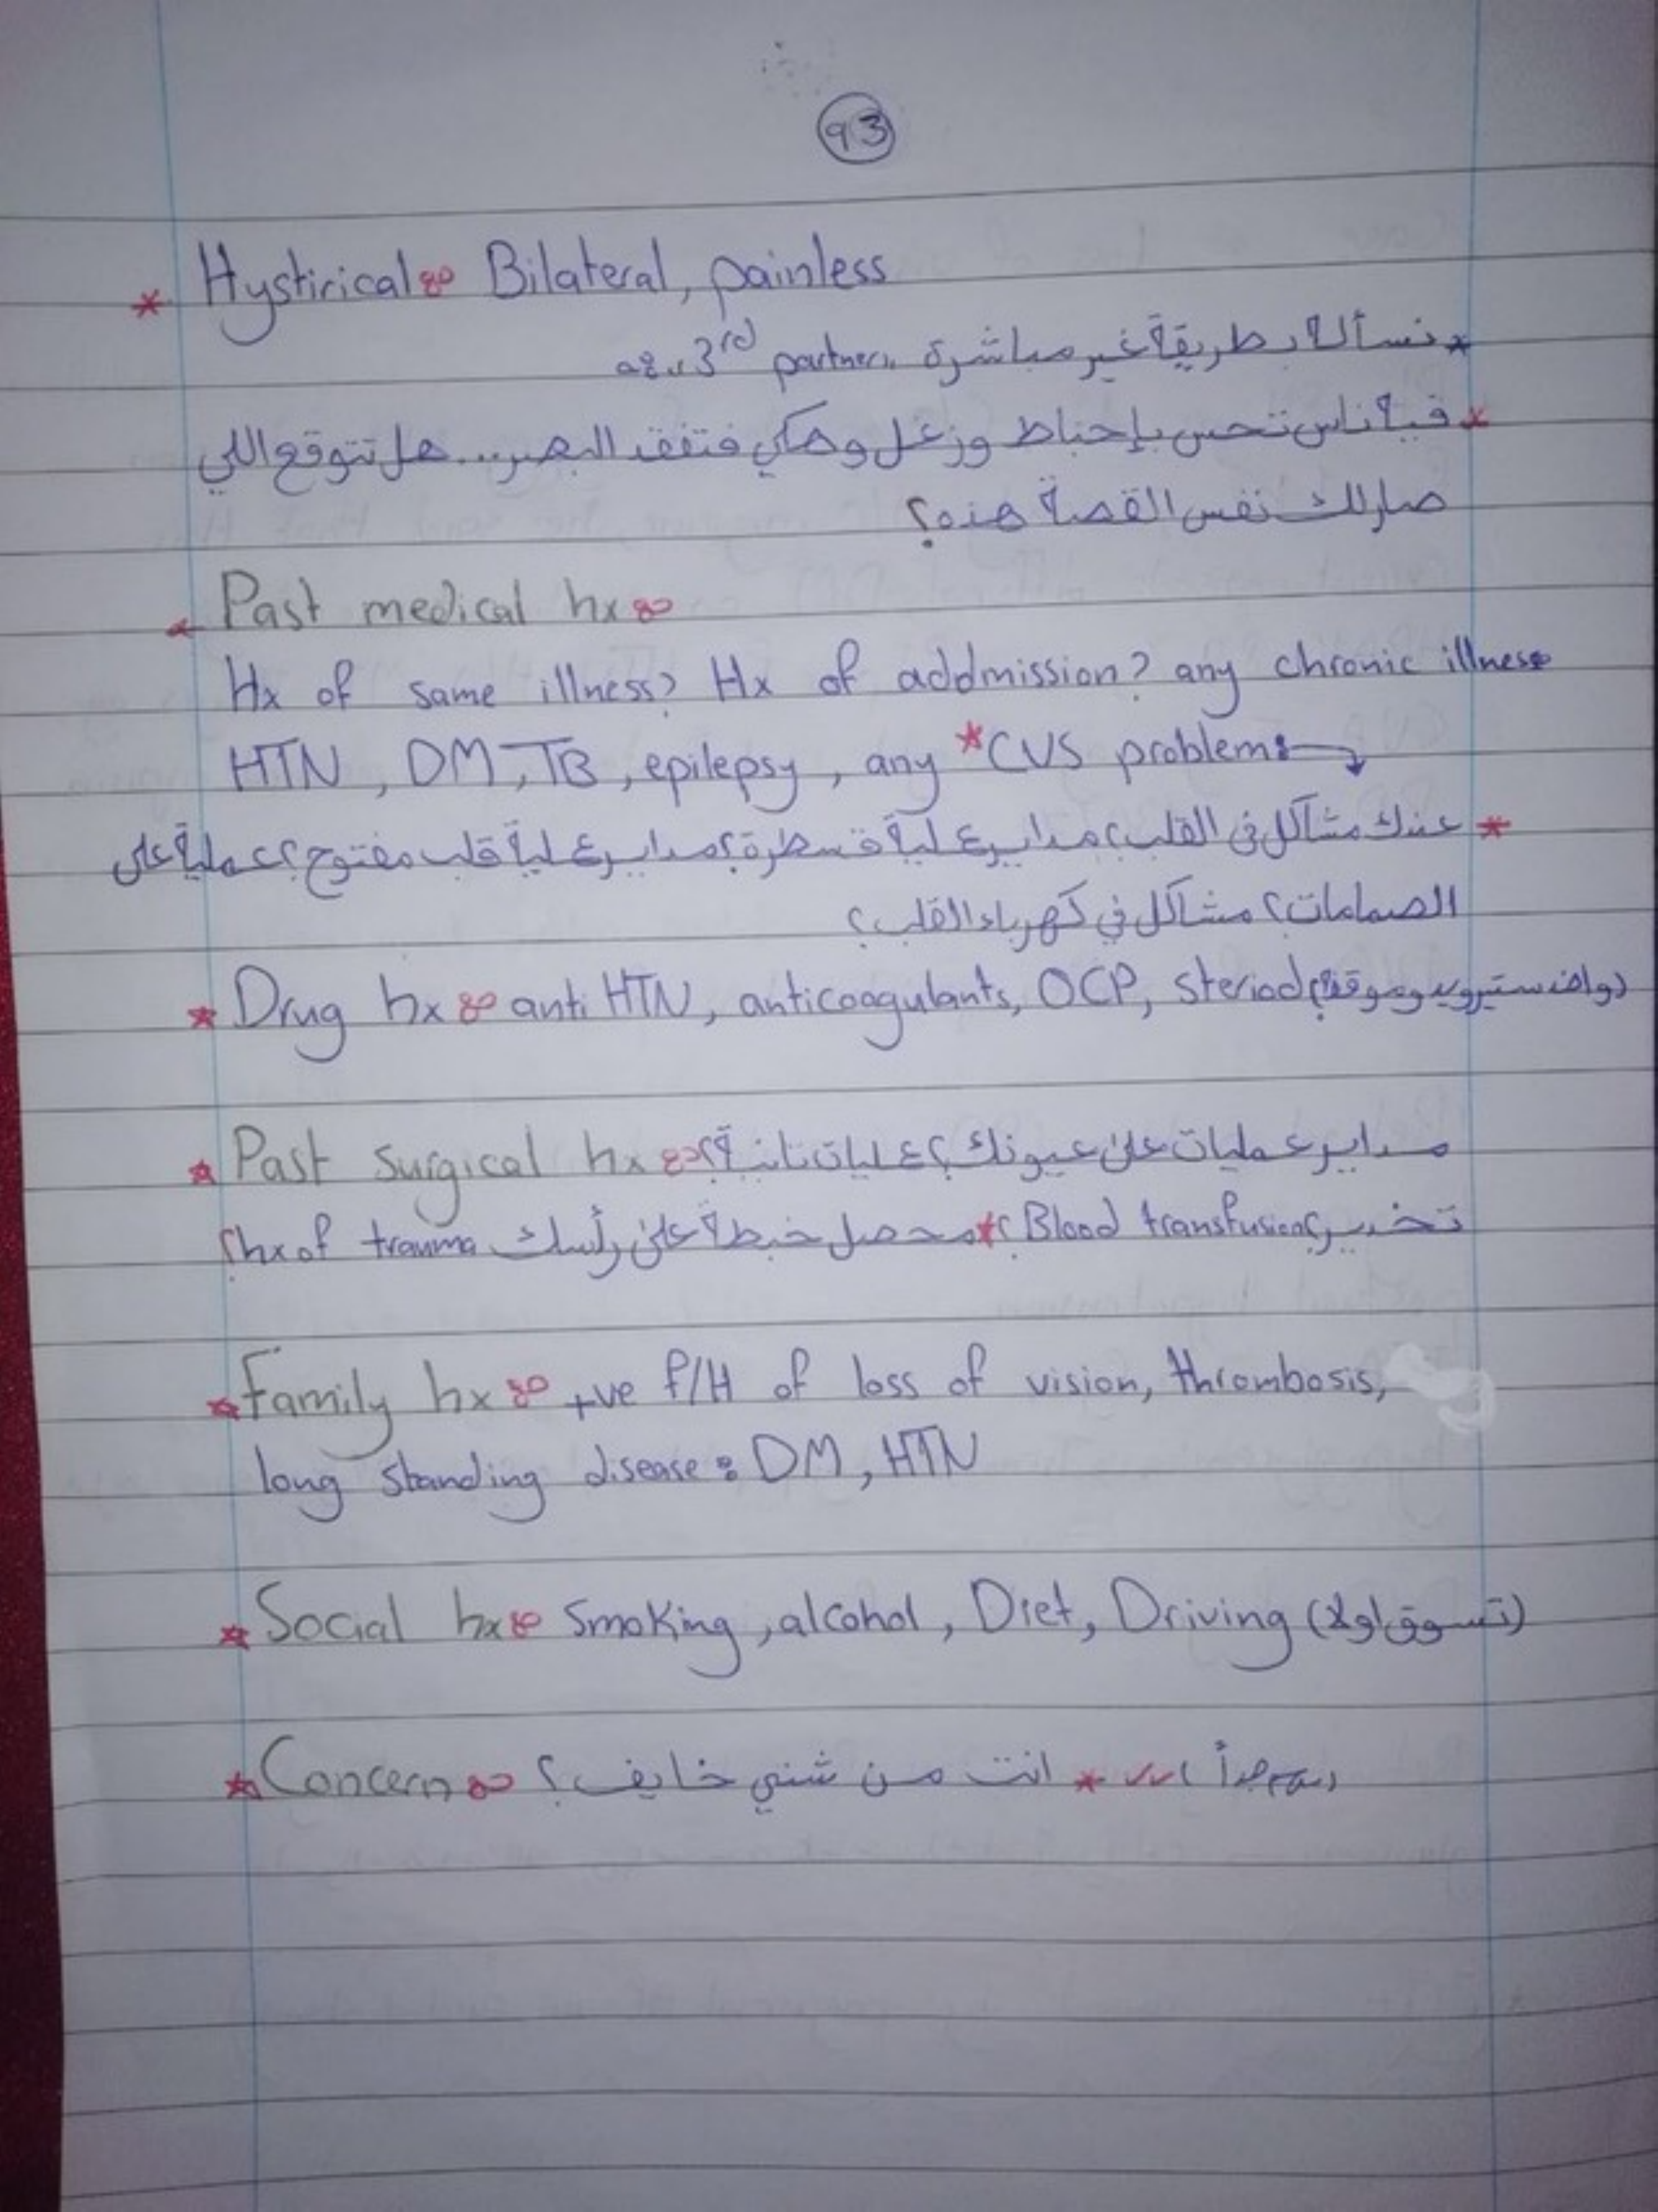 93
* Hystirical: Bilateral, painless
* نسأله بطريقة غير مباشرة 3rd partner
* فيه ناس تحس بإحباط وزعل وهكي فتفقد البصر... هل تتوقع اللي
صارلك نفس القصة هذه؟
* Past medical hx:
Hx of same illness? Hx of addmission? any chronic illness
HTN, DM, TB, epilepsy, any *CVS problem:
* عندك مشاكل في القلب؟ مداير عملية قسطرة؟ مداير عملية قلب مفتوح؟ عملية على
الصمامات؟ مشاكل في كهرباء القلب؟
* Drug hx: anti HTN, anticoagulants, OCP, steriod
* Past surgical hx: مداير عمليات على عيونك؟ عمليات تانية؟
تخدير؟ Blood transfusion؟ * محصل خبطة على رأسك hx of trauma؟
* Family hx: +ve f/H of loss of vision, thrombosis,
long standing disease: DM, HTN
* Social hx: Smoking, alcohol, Diet, Driving (تسوق اولا)
* Concern: انت من شني خايف؟ * مهم جداً